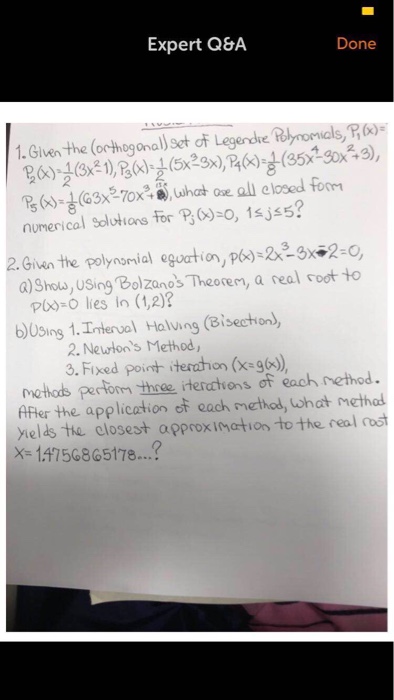 Expert Q&A
Done
1. Given the (orthogonal) set of Legendre Polynomials, P₁(x)=
P₂(x)=1/2(3x²-1), P₃(x)=1/2(5x³-3x), P₄(x)=1/8(35x⁴-30x²+3),
P₅(x)=1/8(63x⁵-70x³+ ), what are all closed form
numerical solutions for Pⱼ(x)=0, 1≤j≤5?
2. Given the polynomial equation, p(x)=2x³-3x-2=0,
a) Show, using Bolzano's Theorem, a real root to
p(x)=0 lies in (1,2)?
b) Using 1. Interval Halving (Bisection),
2. Newton's Method,
3. Fixed point iteration (x=g(x)),
methods perform three iterations of each method.
After the application of each method, what method
yields the closest approximation to the real root
x=1.4756865178...?